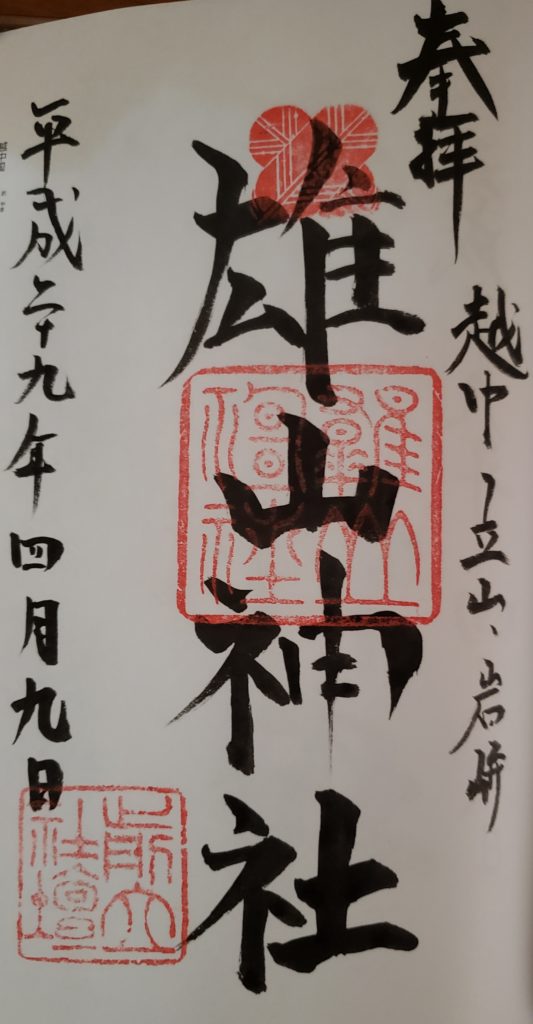 奉拝
越中立山岩峅
雄山神社
雄山神社
前立社壇
平成二十九年四月九日